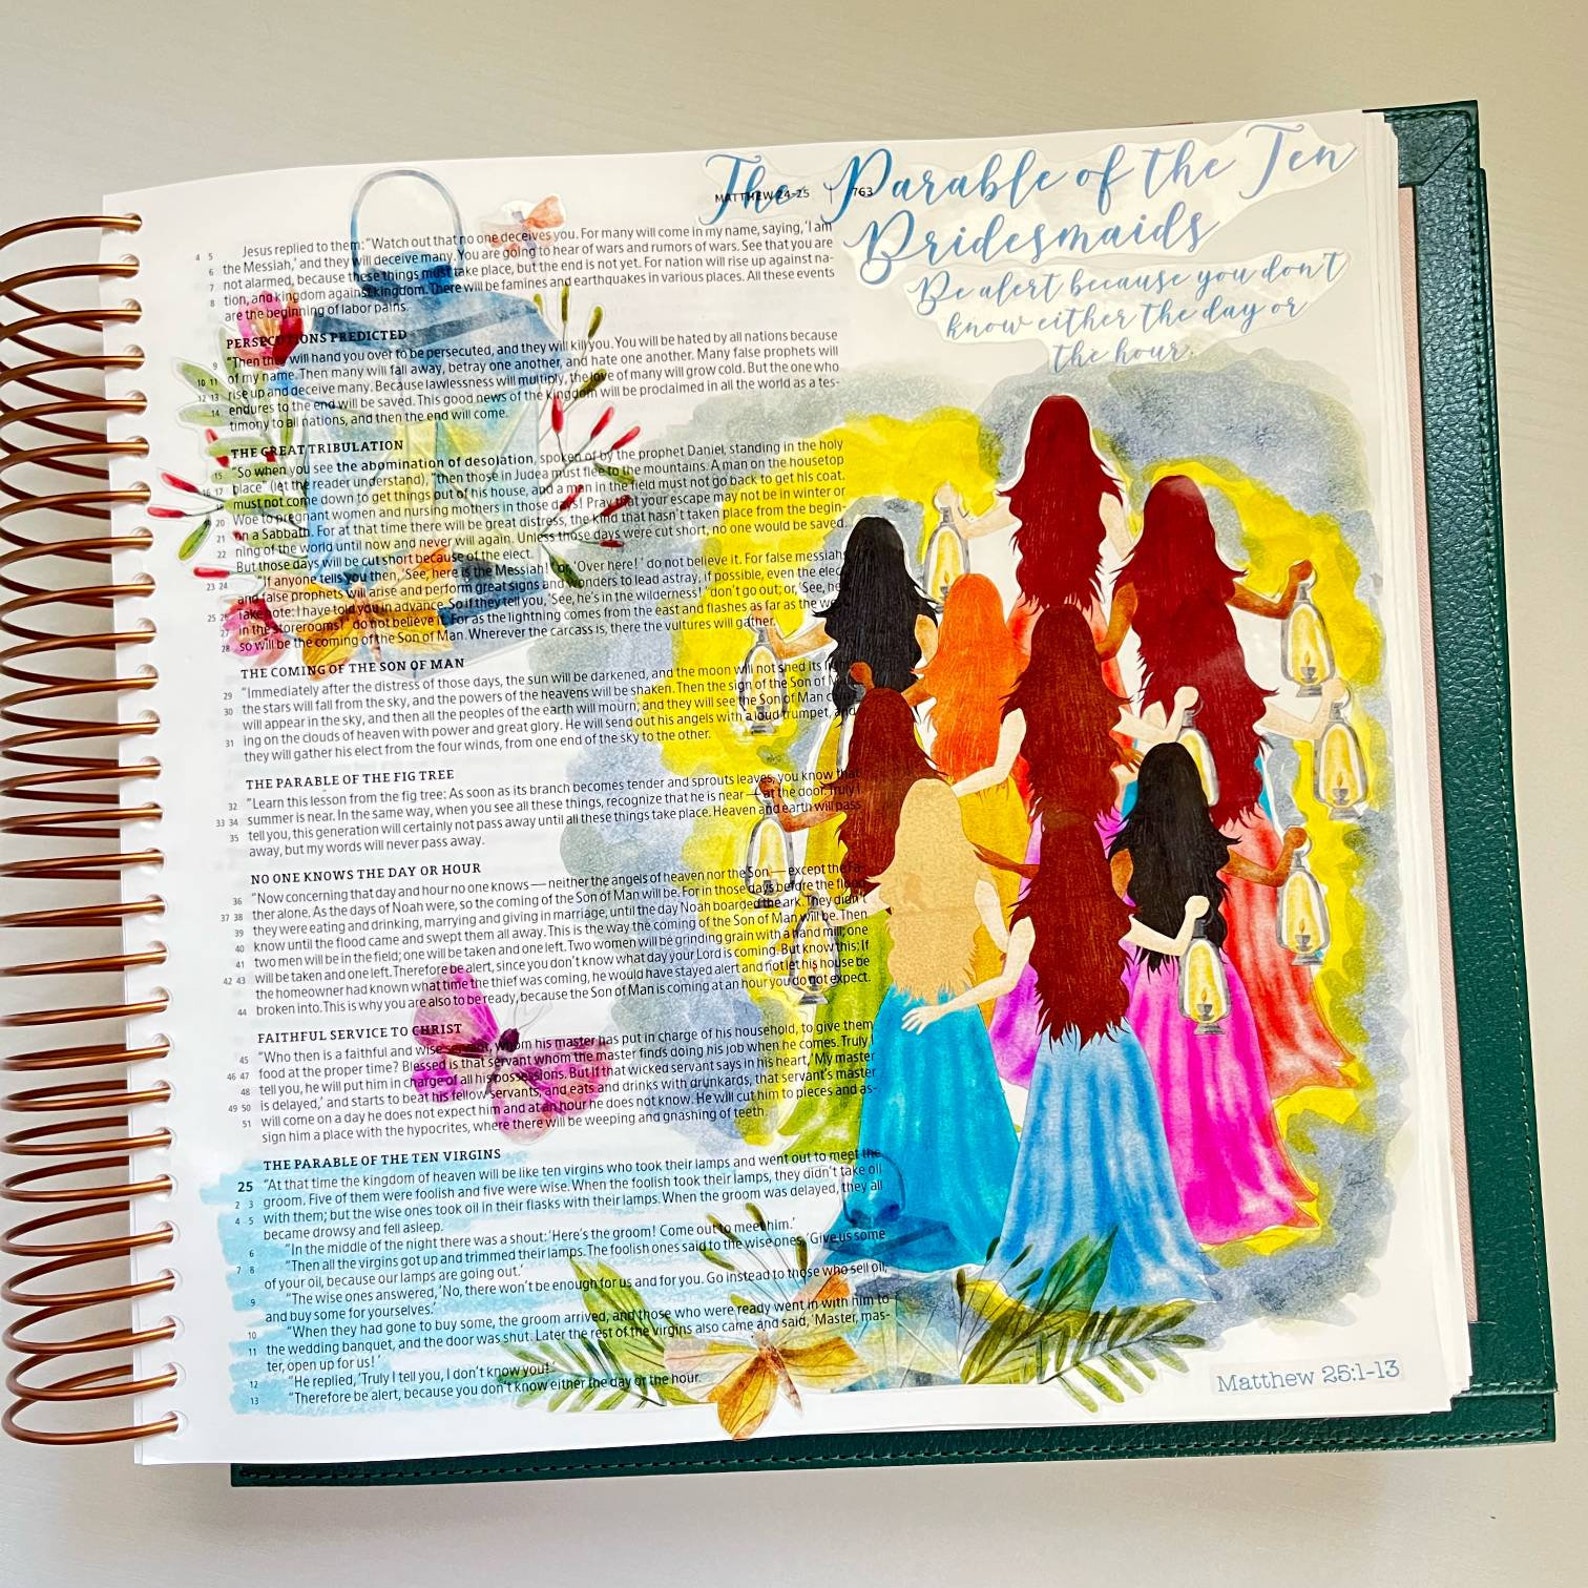 The Parable of the Ten
Bridesmaids
Be alert because you don't
know either the day or
the hour.
MATTHEW 24–25 | 763
4 5 Jesus replied to them: “Watch out that no one deceives you. For many will come in my name, saying, ‘I am
6 the Messiah,’ and they will deceive many. You are going to hear of wars and rumors of wars. See that you are
7 not alarmed, because these things must take place, but the end is not yet. For nation will rise up against na-
8 tion, and kingdom against kingdom. There will be famines and earthquakes in various places. All these events
are the beginning of labor pains.
PERSECUTIONS PREDICTED
9 “Then they will hand you over to be persecuted, and they will kill you. You will be hated by all nations because
10 11 of my name. Then many will fall away, betray one another, and hate one another. Many false prophets will
12 13 rise up and deceive many. Because lawlessness will multiply, the love of many will grow cold. But the one who
14 endures to the end will be saved. This good news of the kingdom will be proclaimed in all the world as a tes-
timony to all nations, and then the end will come.
THE GREAT TRIBULATION
15 “So when you see the abomination of desolation, spoken of by the prophet Daniel, standing in the holy
16 17 place” (let the reader understand), “then those in Judea must flee to the mountains. A man on the housetop
must not come down to get things out of his house, and a man in the field must not go back to get his coat.
20 Woe to pregnant women and nursing mothers in those days! Pray that your escape may not be in winter or
21 on a Sabbath. For at that time there will be great distress, the kind that hasn’t taken place from the begin-
22 ning of the world until now and never will again. Unless those days were cut short, no one would be saved.
But those days will be cut short because of the elect.
23 24 “If anyone tells you then, ‘See, here is the Messiah!’ or, ‘Over here!’ do not believe it. For false messiahs
and false prophets will arise and perform great signs and wonders to lead astray, if possible, even the elect.
25 26 Take note: I have told you in advance. So if they tell you, ‘See, he’s in the wilderness!’ don’t go out; or, ‘See, he’s
27 in the storerooms!’ do not believe it. For as the lightning comes from the east and flashes as far as the west,
28 so will be the coming of the Son of Man. Wherever the carcass is, there the vultures will gather.
THE COMING OF THE SON OF MAN
29 “Immediately after the distress of those days, the sun will be darkened, and the moon will not shed its light;
30 the stars will fall from the sky, and the powers of the heavens will be shaken. Then the sign of the Son of Man
will appear in the sky, and then all the peoples of the earth will mourn; and they will see the Son of Man com-
31 ing on the clouds of heaven with power and great glory. He will send out his angels with a loud trumpet, and
they will gather his elect from the four winds, from one end of the sky to the other.
THE PARABLE OF THE FIG TREE
32 “Learn this lesson from the fig tree: As soon as its branch becomes tender and sprouts leaves, you know that
33 34 summer is near. In the same way, when you see all these things, recognize that he is near — at the door. Truly I
35 tell you, this generation will certainly not pass away until all these things take place. Heaven and earth will pass
away, but my words will never pass away.
NO ONE KNOWS THE DAY OR HOUR
36 “Now concerning that day and hour no one knows — neither the angels of heaven nor the Son — except the Fa-
37 38 ther alone. As the days of Noah were, so the coming of the Son of Man will be. For in those days before the flood
39 they were eating and drinking, marrying and giving in marriage, until the day Noah boarded the ark. They didn’t
40 know until the flood came and swept them all away. This is the way the coming of the Son of Man will be. Then
41 two men will be in the field; one will be taken and one left. Two women will be grinding grain with a hand mill; one
42 43 will be taken and one left. Therefore be alert, since you don’t know what day your Lord is coming. But know this: If
the homeowner had known what time the thief was coming, he would have stayed alert and not let his house be
44 broken into. This is why you are also to be ready, because the Son of Man is coming at an hour you do not expect.
FAITHFUL SERVICE TO CHRIST
45 “Who then is a faithful and wise servant, whom his master has put in charge of his household, to give them
46 47 food at the proper time? Blessed is that servant whom the master finds doing his job when he comes. Truly I
48 tell you, he will put him in charge of all his possessions. But if that wicked servant says in his heart, ‘My master
49 50 is delayed,’ and starts to beat his fellow servants, and eats and drinks with drunkards, that servant’s master
51 will come on a day he does not expect him and at an hour he does not know. He will cut him to pieces and as-
sign him a place with the hypocrites, where there will be weeping and gnashing of teeth.
THE PARABLE OF THE TEN VIRGINS
25 “At that time the kingdom of heaven will be like ten virgins who took their lamps and went out to meet the
2 3 groom. Five of them were foolish and five were wise. When the foolish took their lamps, they didn’t take oil
4 5 with them; but the wise ones took oil in their flasks with their lamps. When the groom was delayed, they all
became drowsy and fell asleep.
6 “In the middle of the night there was a shout: ‘Here’s the groom! Come out to meet him.’
7 8 “Then all the virgins got up and trimmed their lamps. The foolish ones said to the wise ones, ‘Give us some
of your oil, because our lamps are going out.’
9 “The wise ones answered, ‘No, there won’t be enough for us and for you. Go instead to those who sell oil,
and buy some for yourselves.’
10 “When they had gone to buy some, the groom arrived, and those who were ready went in with him to
11 the wedding banquet, and the door was shut. Later the rest of the virgins also came and said, ‘Master, mas-
ter, open up for us!’
12 “He replied, ‘Truly I tell you, I don’t know you!’
13 “Therefore be alert, because you don’t know either the day or the hour.
Matthew 25:1-13